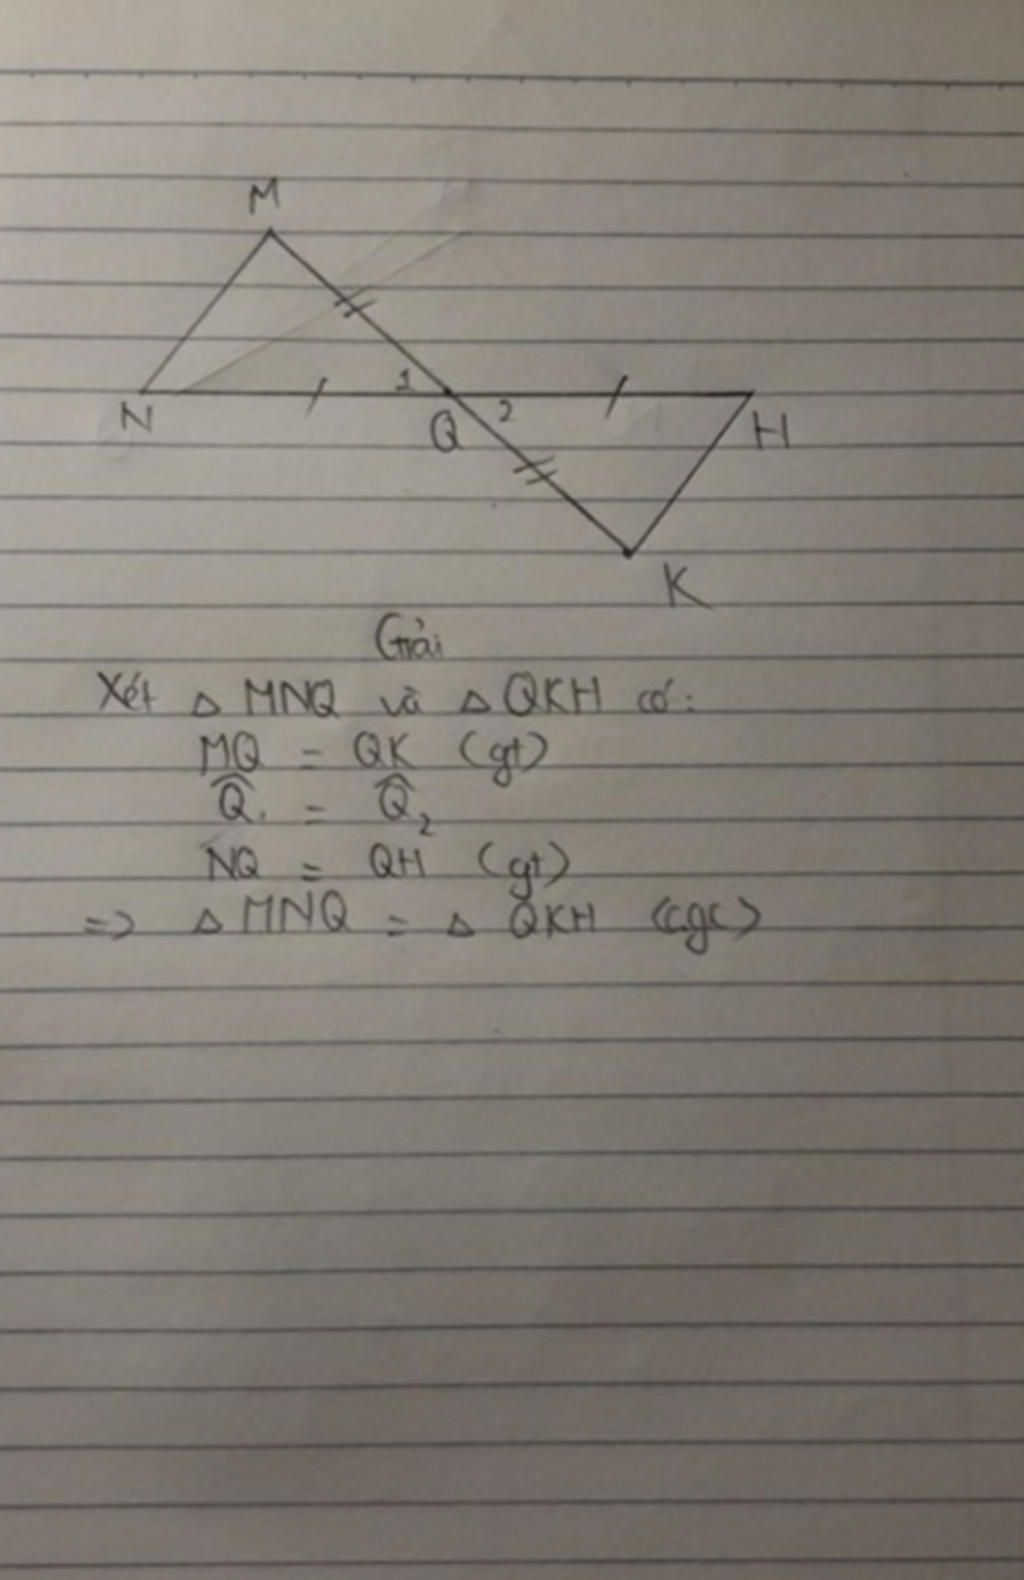 M
N
1
Q
2
H
K
Giải
Xét △ MNQ và △ QKH có:
MQ = QK (gt)
Q̂₁ = Q̂₂
NQ = QH (gt)
=> △ MNQ = △ QKH (c.g.c)